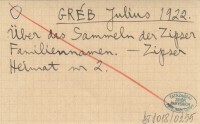 GRÉB Julius 1922.
Über das Sammeln der Zipser
Familiennamen. — Zipser
Heimat nr 2.